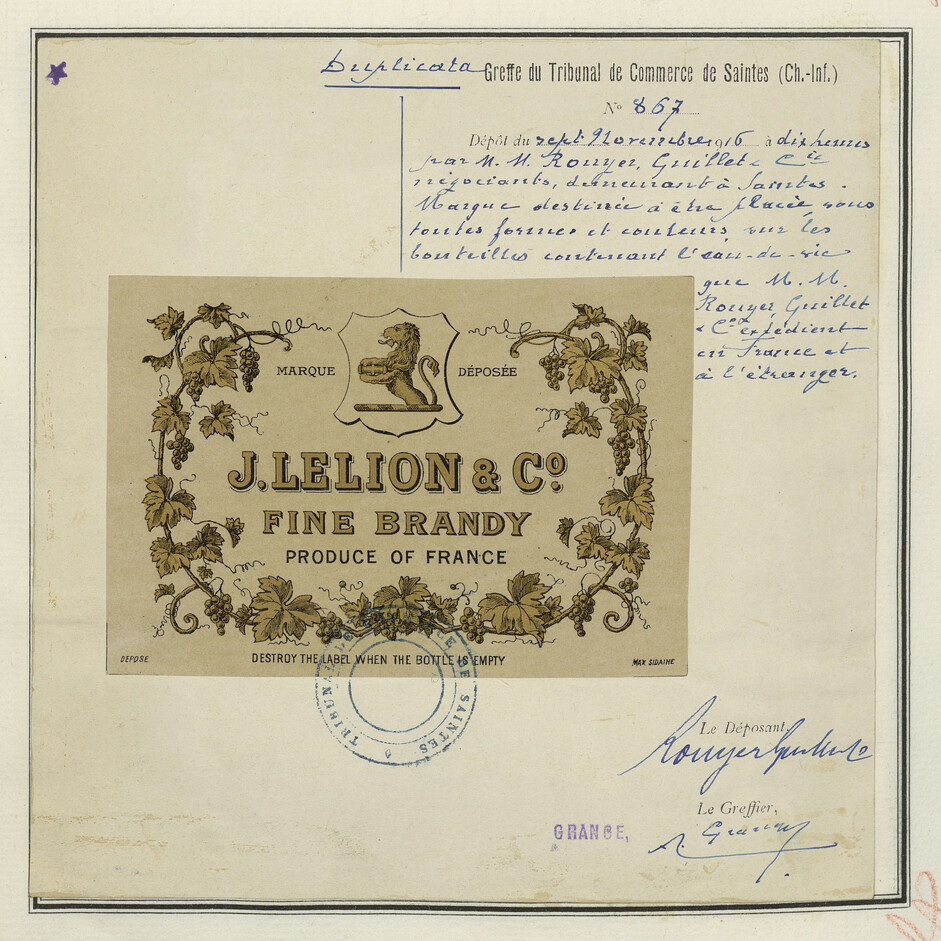 Duplicata Greffe du Tribunal de Commerce de Saintes (Ch.-Inf.)
N° 867
Dépôt du sept Novembre 1916 à dix heures
par M. M. Rouyer, Guillet & Cie
négociants, demeurant à Saintes.
Marque destinée à être placée, sous
toutes formes et couleurs, sur les
bouteilles contenant l'eau-de-vie
que M. M.
Rouyer, Guillet
& Cie expédient
en France et
à l'étranger.
MARQUE DÉPOSÉE
J. LELION & Co.
FINE BRANDY
PRODUCE OF FRANCE
DEPOSE
DESTROY THE LABEL WHEN THE BOTTLE IS EMPTY
MAX SIDAINE
TRIBUNAL DE COMMERCE DE SAINTES
Le Déposant,
Rouyer Guillet &
Le Greffier,
GRANGE,